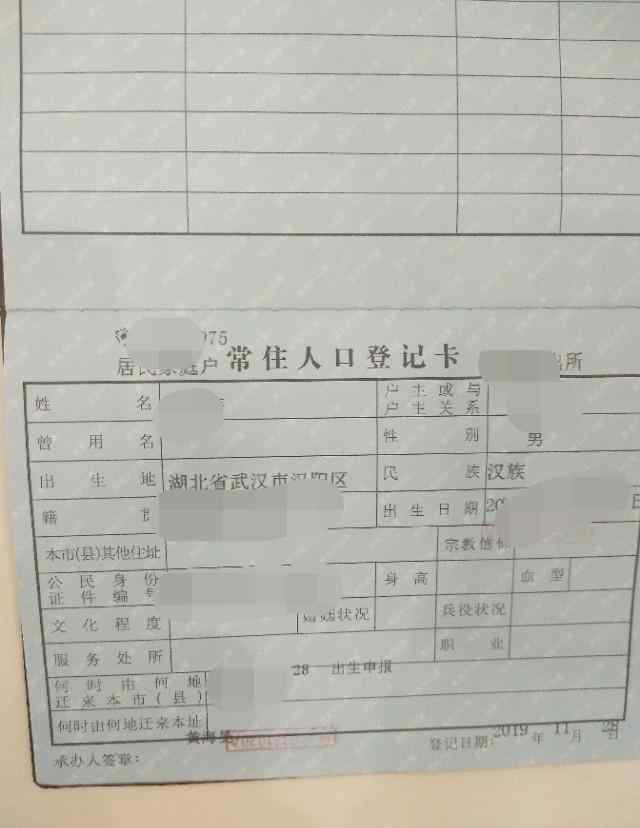 075
居民家庭户 常住人口登记卡 出所
姓 名 户主或与户主关系
曾用名 性别 男
出生地 湖北省武汉市汉阳区 民族 汉族
籍 出生日期 20 日
本市(县)其他住址 宗教信仰
公民身份证件编号 身高 血型
文化程度 婚姻状况 兵役状况
服务处所 职业
何时由何地迁来本市(县) 28 出生申报
何时由何地迁来本址
承办人签章: 黄海 登记日期: 2019 年 11 月 28 日